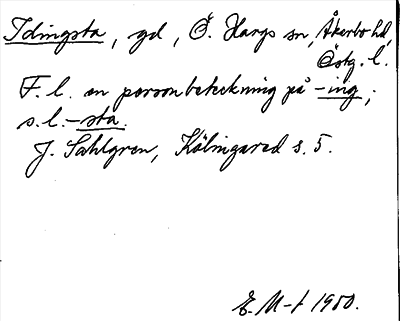 Idingsta, gd, Ö. Hargs sn, Åkerbo hd,
Östg. l.
F. l. en personbeteckning på -ing;
s.l. -sta.
J. Sahlgren, Kölingared s. 5.
E. M-t 1950.